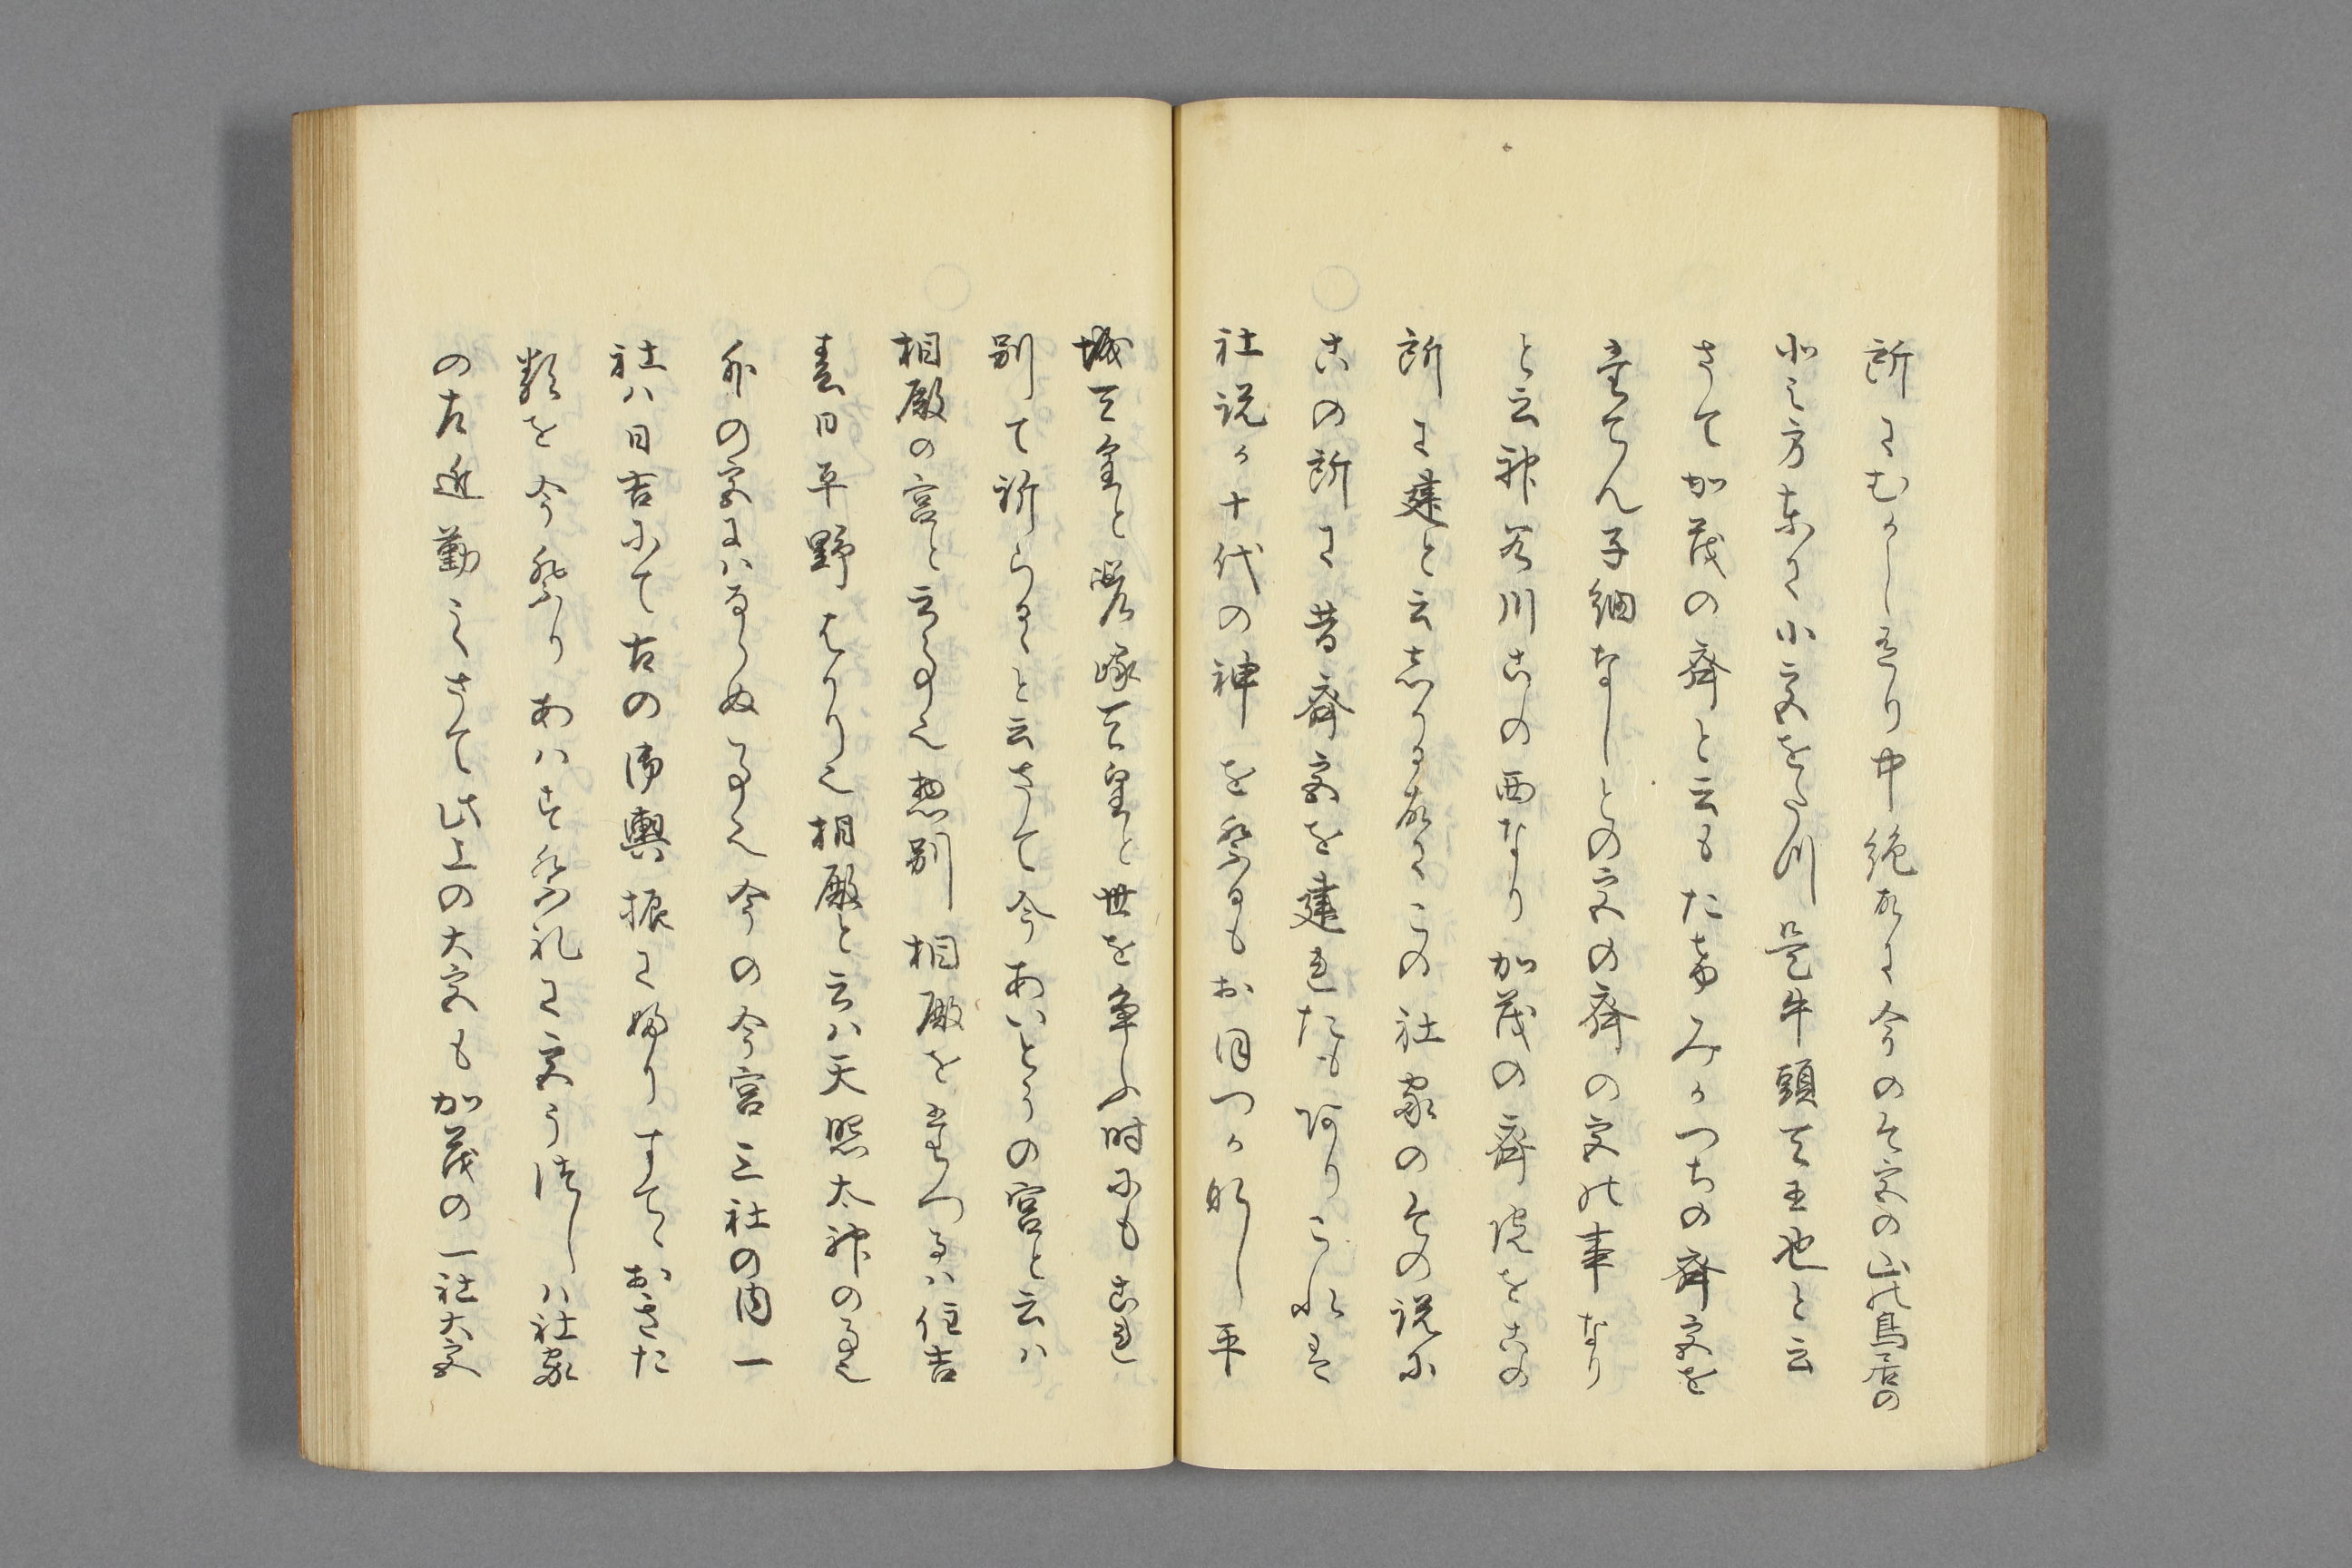 所にむかしより中絶故に今のその宮の山の鳥居の
北之方東に小宮をたつ是牛頭天王也と云
さて加茂の斎と云もたけみかつちの斎宮を
立てん子細なしとの宮の斎の宮の事なり
と云神谷川この西なり加茂の斎院をこの
所に建と云しかる故にこの社家のその説に
この所に昔斎宮を建れたもありこれは
社説か十代の神を祭るもおほつかなし平
城天皇と嵯峨天皇と世を争ふ時にもこれ
別て祈らると云さて今あいとのの宮と云は
相殿の宮と云事也惣別相殿を立つるは住吉
春日平野はかり也相殿と云は天照太神の事也
外の宮にはならぬ事也今の今宮三社の内一
社は日吉にて古の御輿振に帰りすてゝおきた
類を今祭りあはせ祭礼に宮うつしは社家
の古過勤之さて此上の大宮も加茂の一社大宮